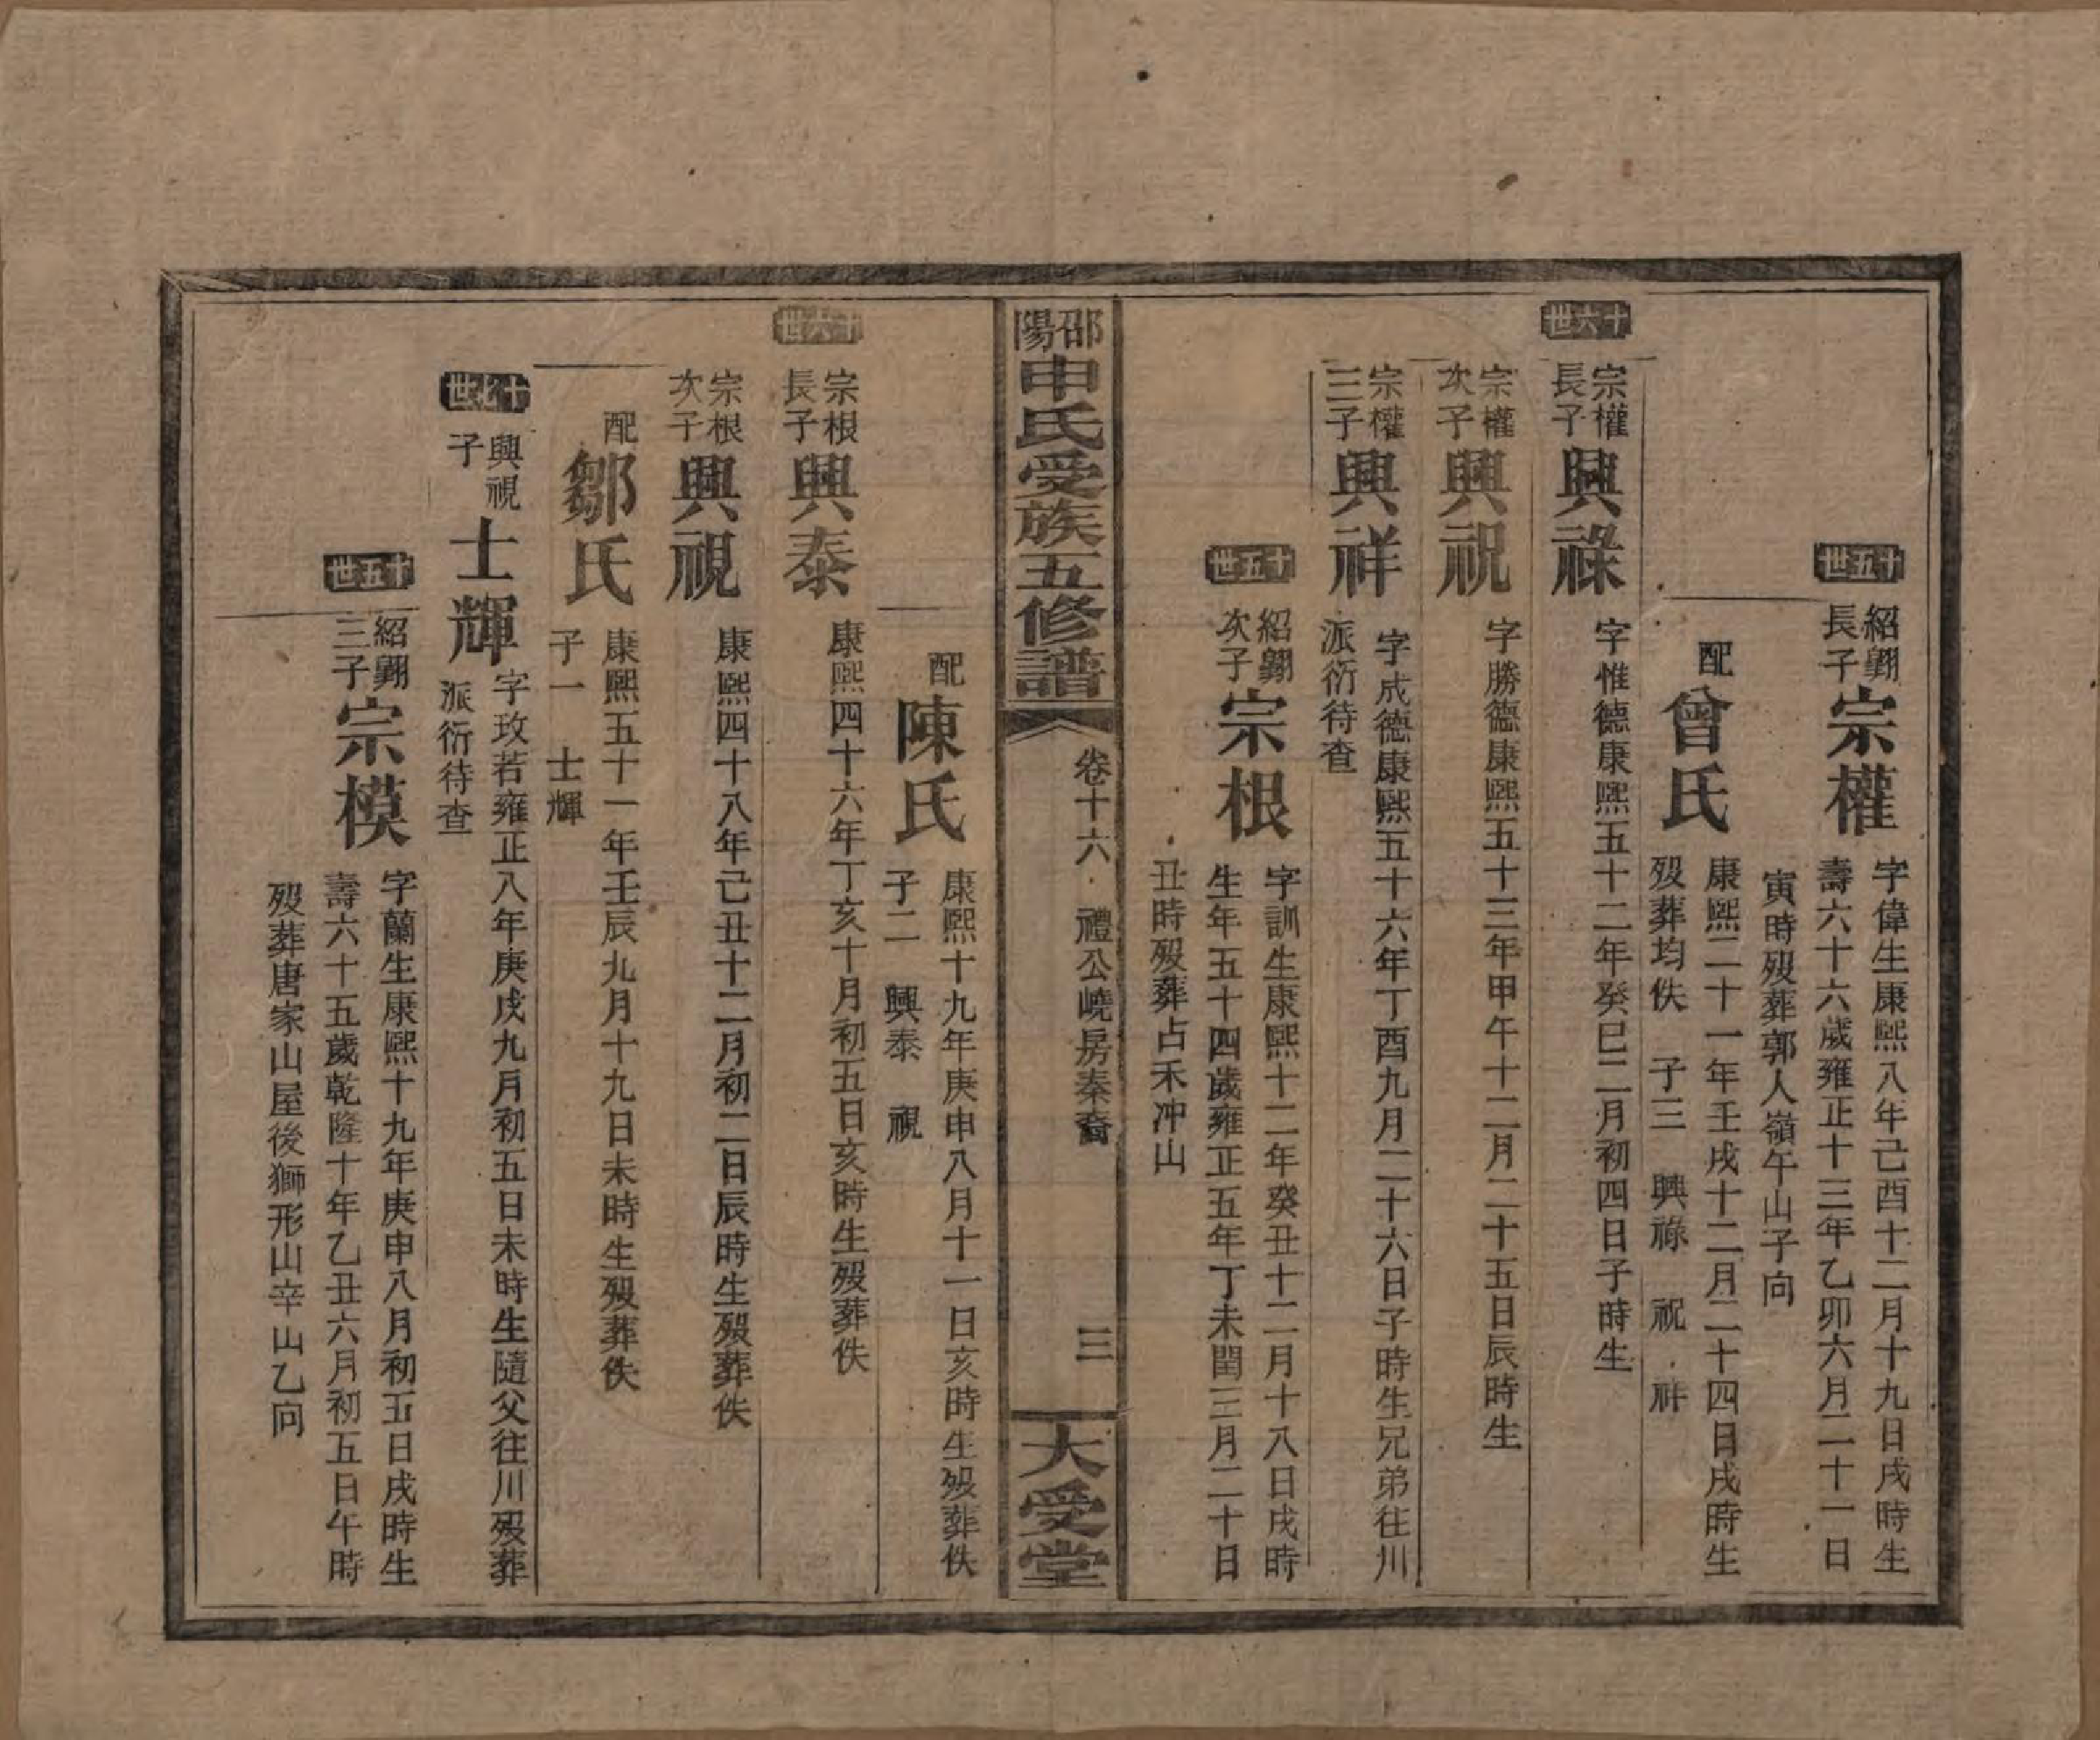 十五世
紹翾
長子
宗權
字偉生康熙八年己酉十二月十九日戌時生
壽六十六歲雍正十三年乙卯六月二十一日
寅時歿葬郭人嶺午山子向
配
曾氏
康熙二十一年壬戌十二月二十四日戌時生
歿葬均佚　子三　興祿　祝　祥
十六世
宗權
長子
興祿
字惟德康熙五十二年癸巳二月初四日子時生
宗權
次子
興祝
字勝德康熙五十三年甲午十二月二十五日辰時生
宗權
三子
興祥
字成德康熙五十六年丁酉九月二十六日子時生兄弟往川
派衍待查
十五世
紹翾
次子
宗根
字訓生康熙十二年癸丑十二月十八日戌時
生年五十四歲雍正五年丁未閏三月二十日
丑時歿葬占禾冲山
邵陽申氏受族五修譜
卷十六　禮公嶢房秦裔
三
大受堂
配
陳氏
康熙十九年庚申八月十一日亥時生歿葬佚
子二　興泰　視
十六世
宗根
長子
興泰
康熙四十六年丁亥十月初五日亥時生歿葬佚
宗根
次子
興視
康熙四十八年己丑十二月初二日辰時生歿葬佚
配
鄒氏
康熙五十一年壬辰九月十九日未時生歿葬佚
子一　士輝
十七世
興視
子
士輝
字玫若雍正八年庚戌九月初五日未時生隨父往川歿葬
派衍待查
十五世
紹翾
三子
宗模
字蘭生康熙十九年庚申八月初五日戌時生
壽六十五歲乾隆十年乙丑六月初五日午時
歿葬唐家山屋後獅形山辛山乙向